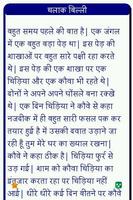 चलाक बिल्ली
बहुत समय पहले की बात है। एक जंगल
में एक बहुत बड़ा पेड़ था। इस पेड़ की
शाखाओं पर बहुत सारे पक्षी रहा करते
थे। इस पेड़ की एक शाखा पर एक
चिड़िया और एक कौवा भी रहते थे।
दोनों ने अपने अपने घोंसले बना रखे
थे। एक बिन चिड़िया ने कौवे से कहा
नजदीक में ही बहुत सारी फसल पक कर
तयार हुई है में उसकी बवात उड़ाने जा
रही हूँ तुम मेरे घर का ख्याल रखना।
कौवे ने कहा ठीक है। चिड़िया फुर्र से
उड़ गई। शाम को कौवा चिड़िया का
इंतजार करता रहा पर चिड़िया नहीं
आई। धीरे धीरे कई दिन बीतने पर कौवे